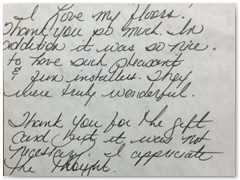 I Love my floors!
Thank you so much. In
addition it was so nice
to have such pleasant
& fun installers. They
were truly wonderful.
Thank you for the gift
card (but it was not
necessary. I appreciate
the thought.